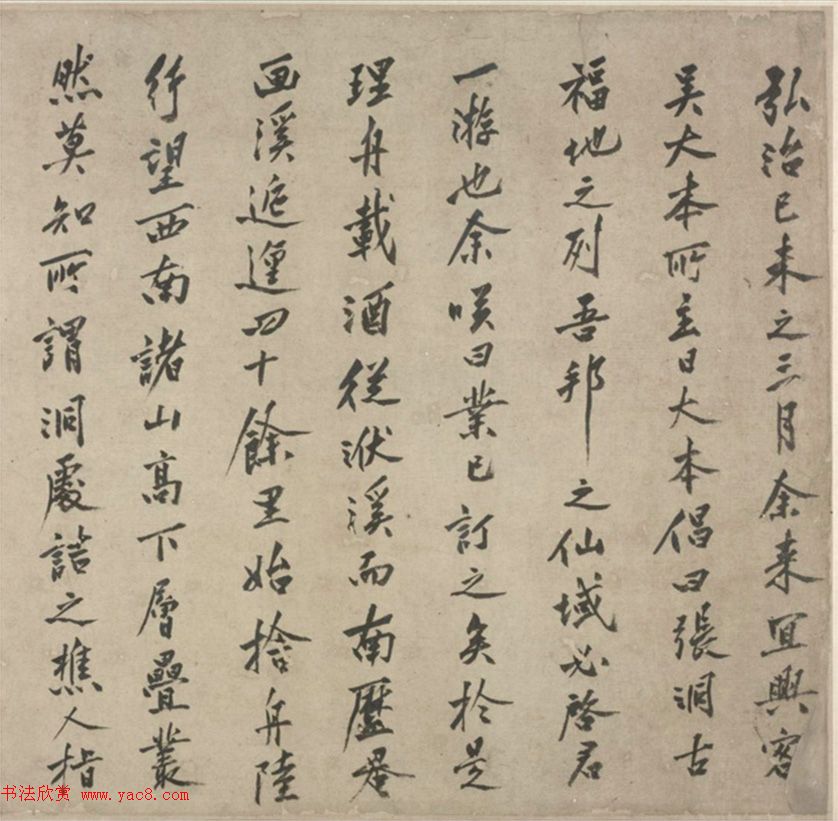 弘治己未之三月余来宜興客
吴大本所主日大本倡曰張洞古
福地之列吾邦之仙域必啓君
一游也余咲曰業已訂之矣於是
理舟載酒從洑溪而南歷罨
画溪迤邐四十餘里始捨舟陸
行望西南諸山高下層疊叢
然莫知所謂洞處詰之樵人指
书法欣赏 www.yac8.com